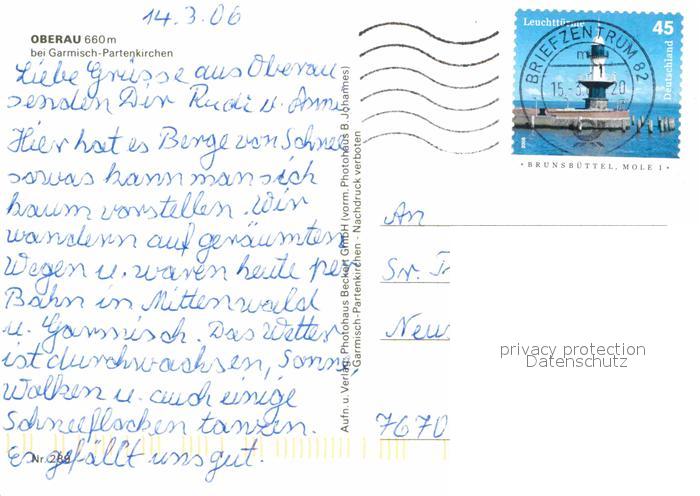 14.3.06
OBERAU 660 m
bei Garmisch-Partenkirchen
Liebe Grüsse aus Oberau
senden Dir Rudi u. Anne
Hier hat es Berge von Schnee
sowas kann man sich
kaum vorstellen. Wir
wandern auf geräumten
Wegen u. waren heute per
Bahn in Mittenwald
u. Garmisch. Das Wetter
ist durchwachsen, Sonne,
Wolken u. auch einige
Schneeflocken tanzen.
Es gefällt uns gut.
Nr. 288
Aufn. u. Verlag: Photohaus Beckert GmbH (vorm. Photohaus B. Johannes)
Garmisch-Partenkirchen - Nachdruck verboten
Leuchttürme
45
Deutschland
BRIEFZENTRUM 82
15.-3.
20
BRUNSBÜTTEL, MOLE 1
An
Neu
7670
privacy protection
Datenschutz